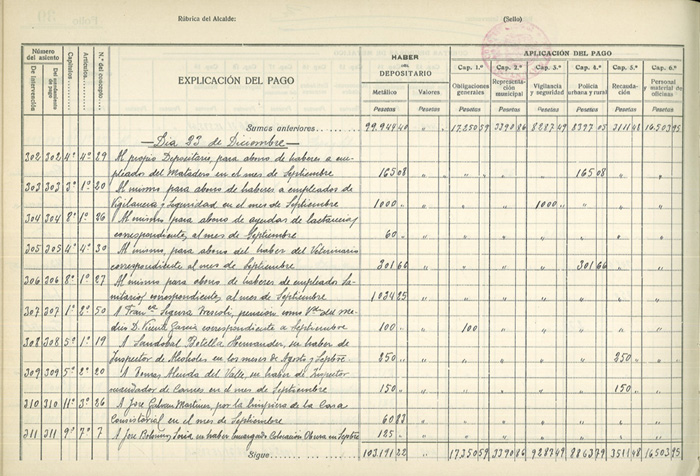 Rúbrica del Alcalde:
(Sello)
Número del asiento
De intervención
Del mandamiento de pago
Capítulos
Artículos
N.º del concepto
EXPLICACIÓN DEL PAGO
HABER DEL DEPOSITARIO
Metálico
Valores
Pesetas
Pesetas
APLICACIÓN DEL PAGO
Cap. 1.º Cap. 2.º Cap. 3.º Cap. 4.º Cap. 5.º Cap. 6.º
Obligaciones generales
Representación municipal
Vigilancia y seguridad
Policía urbana y rural
Recaudación
Personal y material de oficinas
Pesetas Pesetas Pesetas Pesetas Pesetas Pesetas
Sumas anteriores 99.944 40 " " 17250 59 3390 86 8287 49 8397 05 3111 48 16503 95
Dia 23 de Diciembre
302 302 4º 4º 29 Al propio Depositario, para abono de haberes a empleados del Matadero en el mes de Septiembre 165 08 165 08
303 303 3º 1º 20 Al mismo para abono de haberes a empleados de Vigilancia y Seguridad en el mes de Septiembre 1000 1000
304 304 8º 1º 26 Al mismo para abono de ayudas de lactancia, correspondiente, al mes de Septiembre 60
205 205 4º 4º 30 Al mismo, para abono del haber del Veterinario correspondiente al mes de Septiembre 301 66 301 66
206 206 8º 1º 27 Al mismo para abono de haberes de empleados Sanitarios correspondiente, al mes de Septiembre 1034 25
207 207 1º 2º 50 A Segura pensión como del medico D. Vicente García correspondiente a Septiembre 100 100
208 208 5º 1º 19 A Sandobal Botella Hernandez, su haber de Inspector de Alcoholes en los meses de Agosto y Septbre. 250 250
209 209 5º 2º 20 A Tomas del Valle, su haber de Inspector de Carnes en el mes de Septiembre 150 150
210 210 11º 3º 26 A Jose Galvan Martinez, por la limpieza de la Casa Consistorial en el mes de Septiembre 60 83
211 211 9º 7º 7 A Jose Soria su haber Encargado Obrera en Septbre 125
Sigue 103.191 22 17350 59 3390 86 9287 49 8863 79 3511 48 16503 95